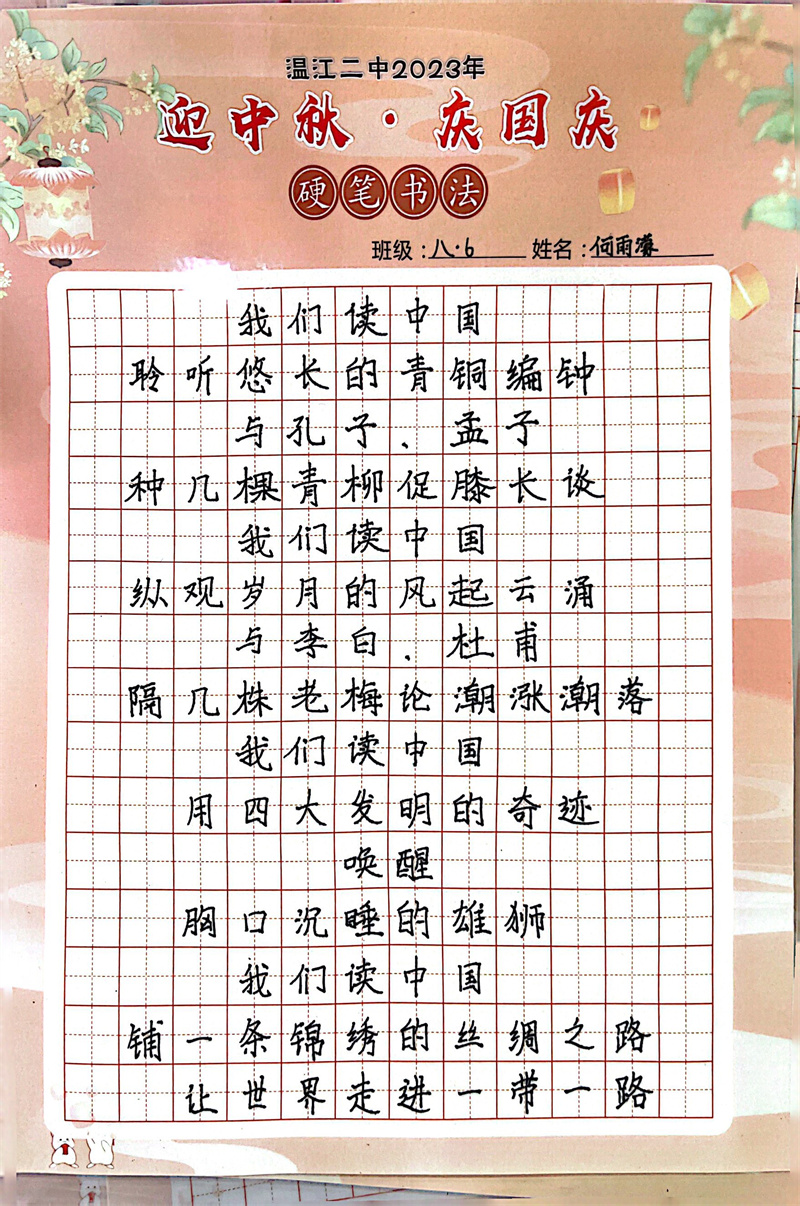 温江二中2023年
迎中秋·庆国庆
硬笔书法
班级:八·6 姓名:何雨濛
我们读中国
聆听悠长的青铜编钟
与孔子、孟子
种几棵青柳促膝长谈
我们读中国
纵观岁月的风起云涌
与李白、杜甫
隔几株老梅论潮涨潮落
我们读中国
用四大发明的奇迹
唤醒
胸口沉睡的雄狮
我们读中国
铺一条锦绣的丝绸之路
让世界走进一带一路